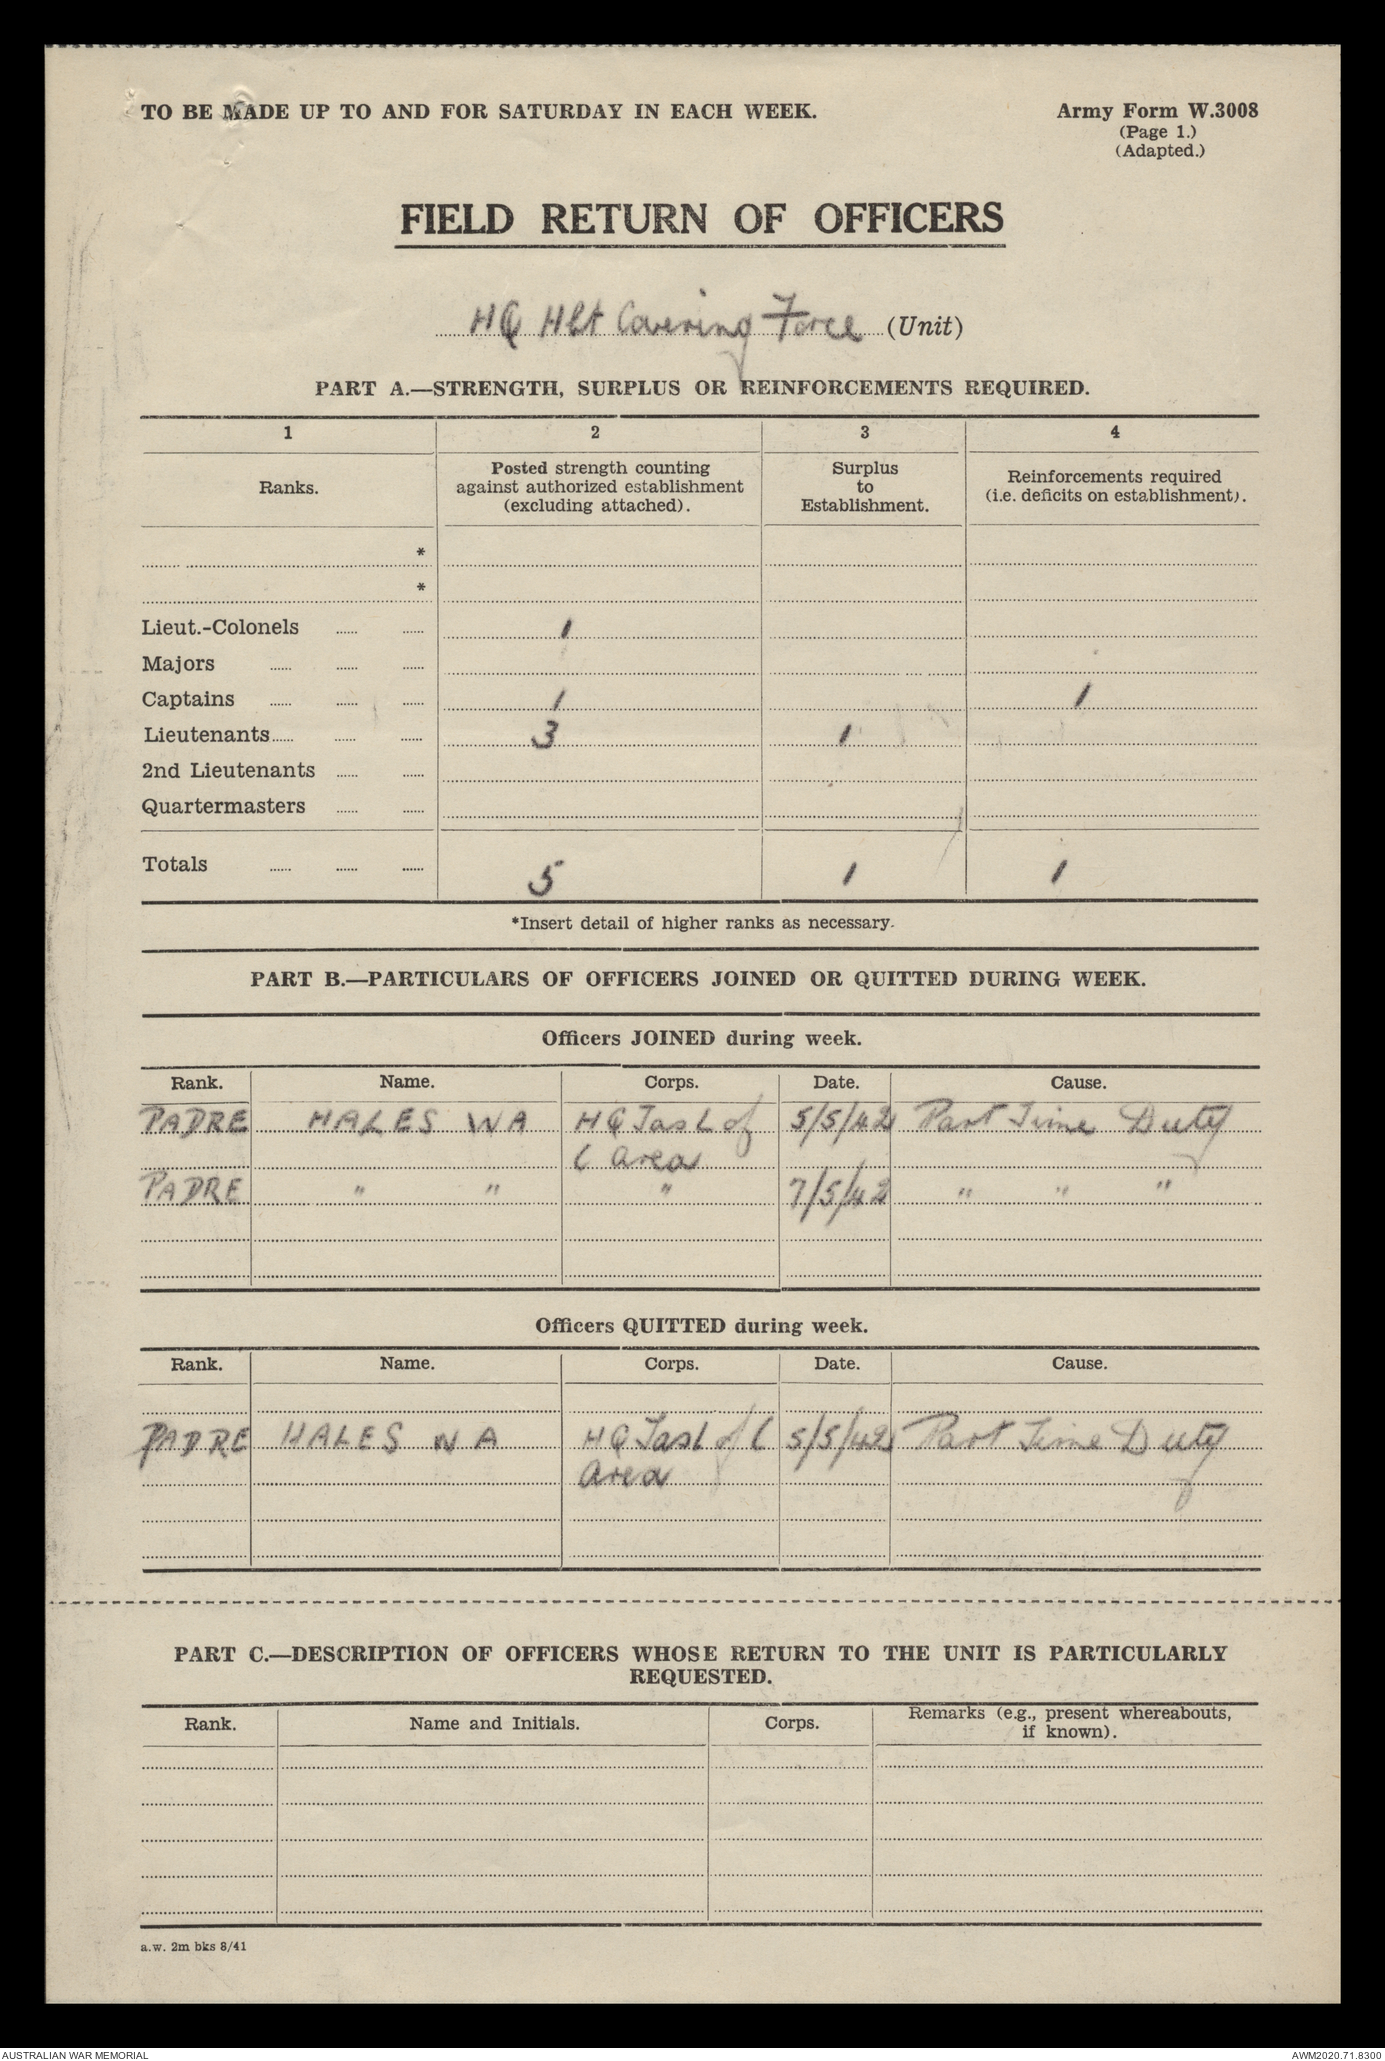 TO BE MADE UP TO AND FOR SATURDAY IN EACH WEEK. Army Form W.3008
(Page 1.)
(Adapted.)
FIELD RETURN OF OFFICERS
HQ Hbt Covering Force (Unit)
PART A.—STRENGTH, SURPLUS OR REINFORCEMENTS REQUIRED.
1 2 3 4
Ranks. Posted strength counting against authorized establishment (excluding attached). Surplus to Establishment. Reinforcements required (i.e. deficits on establishment).
*
*
Lieut.-Colonels 1
Majors
Captains 1 1
Lieutenants 3 1
2nd Lieutenants
Quartermasters
Totals 5 1 1
*Insert detail of higher ranks as necessary.
PART B.—PARTICULARS OF OFFICERS JOINED OR QUITTED DURING WEEK.
Officers JOINED during week.
Rank. Name. Corps. Date. Cause.
PADRE HALES WA HQ Tas L of 5/5/42 Part Time Duty
C Area
PADRE " " " 7/5/42 " " "
Officers QUITTED during week.
Rank. Name. Corps. Date. Cause.
PADRE HALES W A HQ Tas L of C 5/5/42 Part Time Duty
Area
PART C.—DESCRIPTION OF OFFICERS WHOSE RETURN TO THE UNIT IS PARTICULARLY
REQUESTED.
Rank. Name and Initials. Corps. Remarks (e.g., present whereabouts, if known).
a.w. 2m bks 8/41
AUSTRALIAN WAR MEMORIAL AWM2020.71.8300